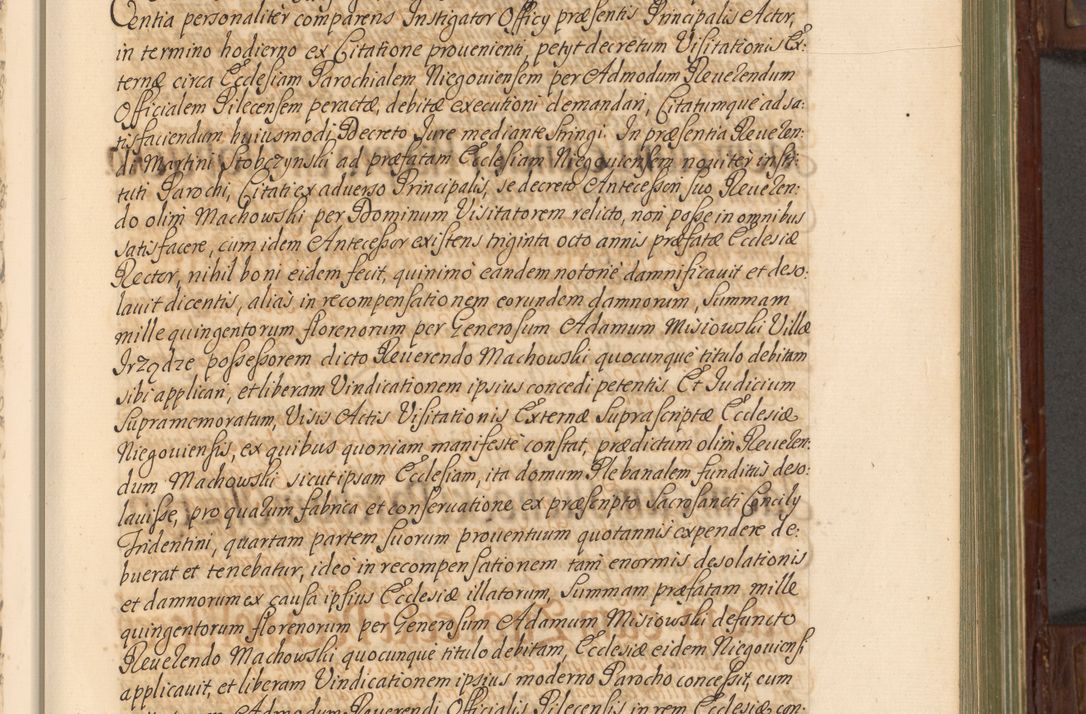 Centia personaliter comparens Instigator Officy præsentis Principalis Actor,
in termino hodierno ex Citatione prouenienti, petyt decretum Visitationis Ex-
ternæ circa Ecclesiam Parochialem Niegouiensem per Admodum Reuerendum
Officialem Pilecensem peractæ, debitæ executioni demandari, Citatumque ad sa-
tisfaciendum huiusmodi Decreto Jure mediante stringi. In præsentia Reueren-
di Martini Stobczynski ad præfatam Ecclesiam Niegouiensem nouiter insti-
tuti Parochi, Citati ex aduerso Principalis, se decreto Antecessori suo Reueren-
do olim Machowski per Dominum Visitatorem relicto, non posse in omnibus
satisfacere, cum idem Antecessor existens triginta octo annis præfatæ Ecclesiæ
Rector, nihil boni eidem fecit, quinimo eandem notorie damnificauit et deso-
lauit dicentis, alias in recompensationem eorundem damnorum, Summam
mille quingentorum florenorum per Generosum Adamum Misiowski Villæ
Irządze possessorem dicto Reuerendo Machowski quocunque titulo debitam
sibi applicari, et liberam Vindicationem ipsius concedi petentis Et Judicium
supramemoratum, Visis Actis Visitationis Externæ suprascriptæ Ecclesiæ
Niegouiensis, ex quibus quoniam manifeste constat, prædictum olim Reueren-
dum Machowski sicut ipsam Ecclesiam, ita domum Plebanalem funditus deso-
lauisse, pro quarum fabrica et conseruatione ex præscripto Sacrosancti Concily
Tridentini, quartam partem suorum prouentuum quotannis expendere de-
buerat et tenebatur, ideo in recompensationem tam enormis desolationis
et damnorum ex causa ipsius Ecclesiæ illatorum, Summam præfatam mille
quingentorum florenorum per Generosum Adamum Misiowski defuncto
Reuerendo Machowski quocunque titulo debitam, Ecclesiæ eidem Niegouiensi
applicauit, et liberam Vindicationem ipsius moderno Parocho concessit, cum
Admodum Reuerendi Officialis Pilecensis in rem Ecclesiæ con-